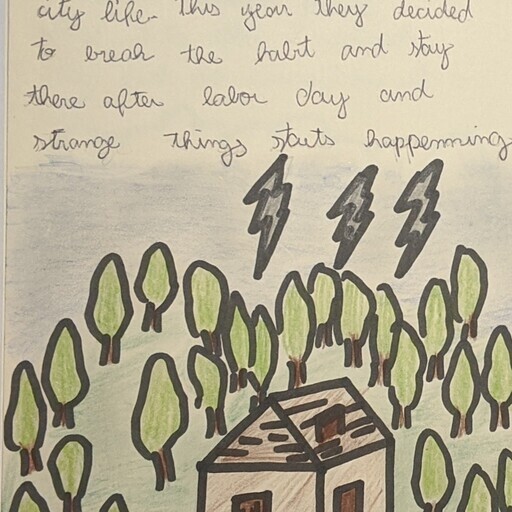 city life. This year they decided
to break the habit and stay
there after labor day and
strange things starts happenning